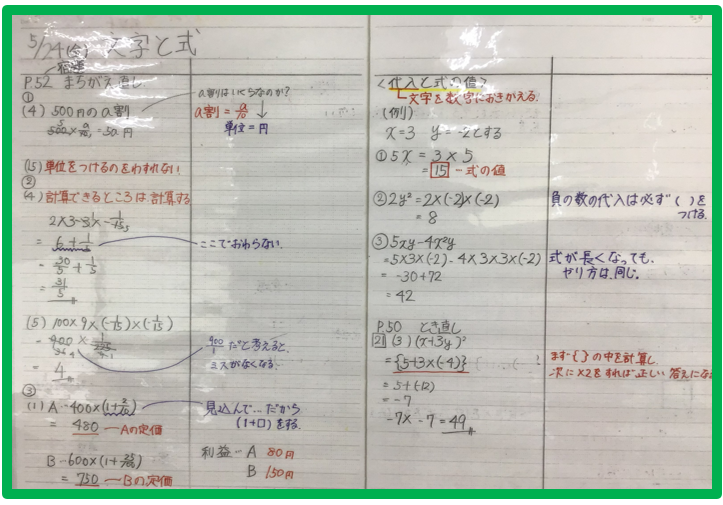 5/24(金) 文字と式
宿題
P.52 まちがえ直し
①
(4) 500円のa割
500×a/10=50a円
a割はいくらなのか?
a割=a/10
単位=円
(15)単位をつけるのをわすれない
②
(4)計算できるところは計算する
2×3-3×-1/15
= 6+1/5
ここでおわらない。
= 30/5+1/5
= 31/5
(5) 100×9×(-1/15)×(-1/15)
= 900×1/225
= 4
900/1だと考えると、
ミスがなくなる。
③
(1) A…400×(1+2/10)
= 480 ーAの定価
見込んで…だから
(1+□)をする。
B…600×(1+25/100)
= 750 ーBの定価
利益… A 80円
B 150円
<代入と式の値>
文字を数字におきかえる.
(例)
x=3 y=-2とする
①5x=3×5
=15…式の値
②2y²=2×(-2)×(-2)
=8
負の数の代入は必ず( )を
つける.
③5xy-4x²y
=5×3×(-2)-4×3×3×(-2)
=-30+72
=42
式が長くなっても、
やり方は、同じ。
P.50 とき直し
21 (3) (x+3y)²
={5+3×(-4)}
=5+(-12)
=-7
-7×-7=49
まず{ }の中を計算し
次に×2をすれば正しい答えにな